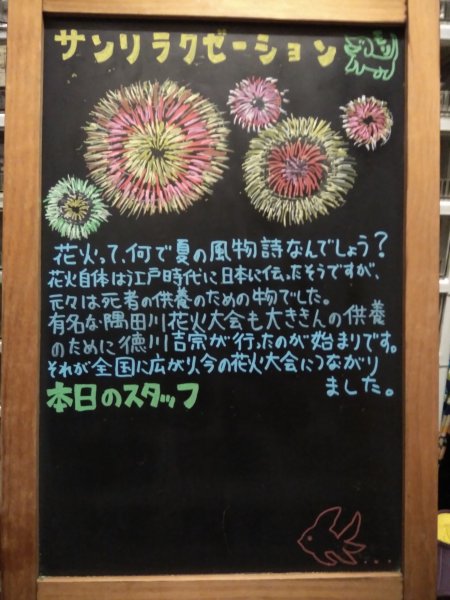 サンリラクゼーション
花火って、何で夏の風物詩なんでしょう?
花火自体は江戸時代に日本に伝ったそうですが、
元々は死者の供養のための物でした。
有名な隅田川花火大会も大ききんの供養
のために徳川吉宗が行ったのが始まりです。
それが全国に広がり今の花火大会につながり
ました。
本日のスタッフ